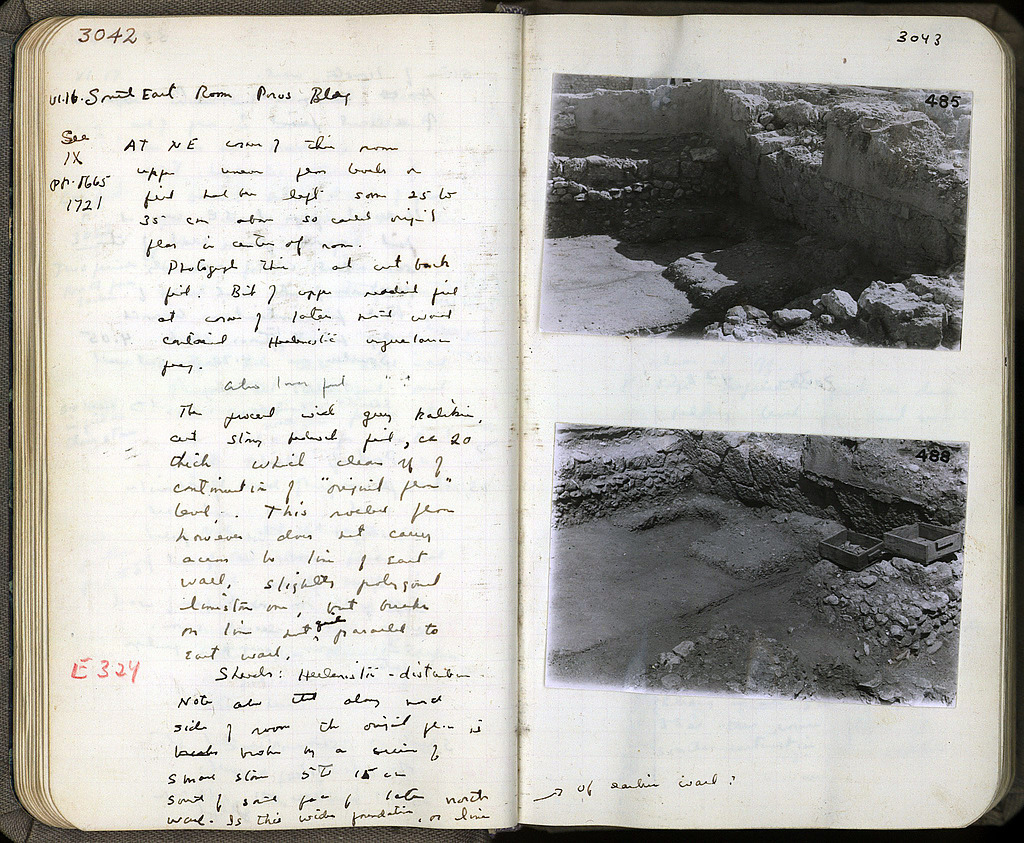 3042
VI.16. South East Room Poros Bldg
See
IX
pp. 1665
1721
At NE corner of this room
upper uneven floor levels or
fill had been left some 25 to
35 cm above so called original
floor in center of room.
Photograph this and cut back
fill. Bit of upper reddish fill
at corner of later north wall
contained Hellenistic
frag.
Also lower fill " "
Then proceed with
cut stony fill, ca 20
thick which clears off of
continuation of "original floor"
level. This floor
however does not carry
across to line of east
wall, slightly polygonal
limestone one, but breaks
on line not quite parallel to
East wall.
E 324
Sherds: Hellenistic - distribution
Note also that along north
side of room the original floor is
broken by a series of
small stones 5 to 15 cm
South of south face of later north
wall. Is this wider foundation, or line
3043
485
488
→ of earlier wall?